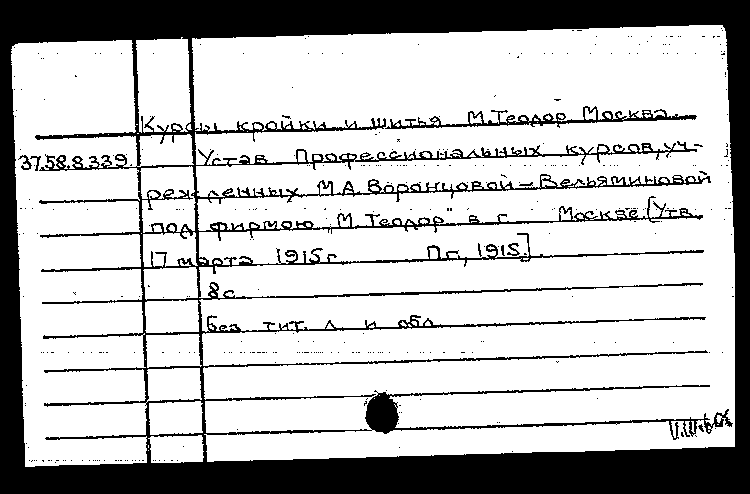 Курсы кройки и шитья М.Теодор Москва.
37.58.8.339. Устав Профессиональных курсов, уч-
режденных М.А. Воронцовой-Вельяминовой
под фирмою „М. Теодор" в г. Москве [Утв.
17 марта 1915г. Пг., 1915].
8 с.
Без тит. л. и обл.